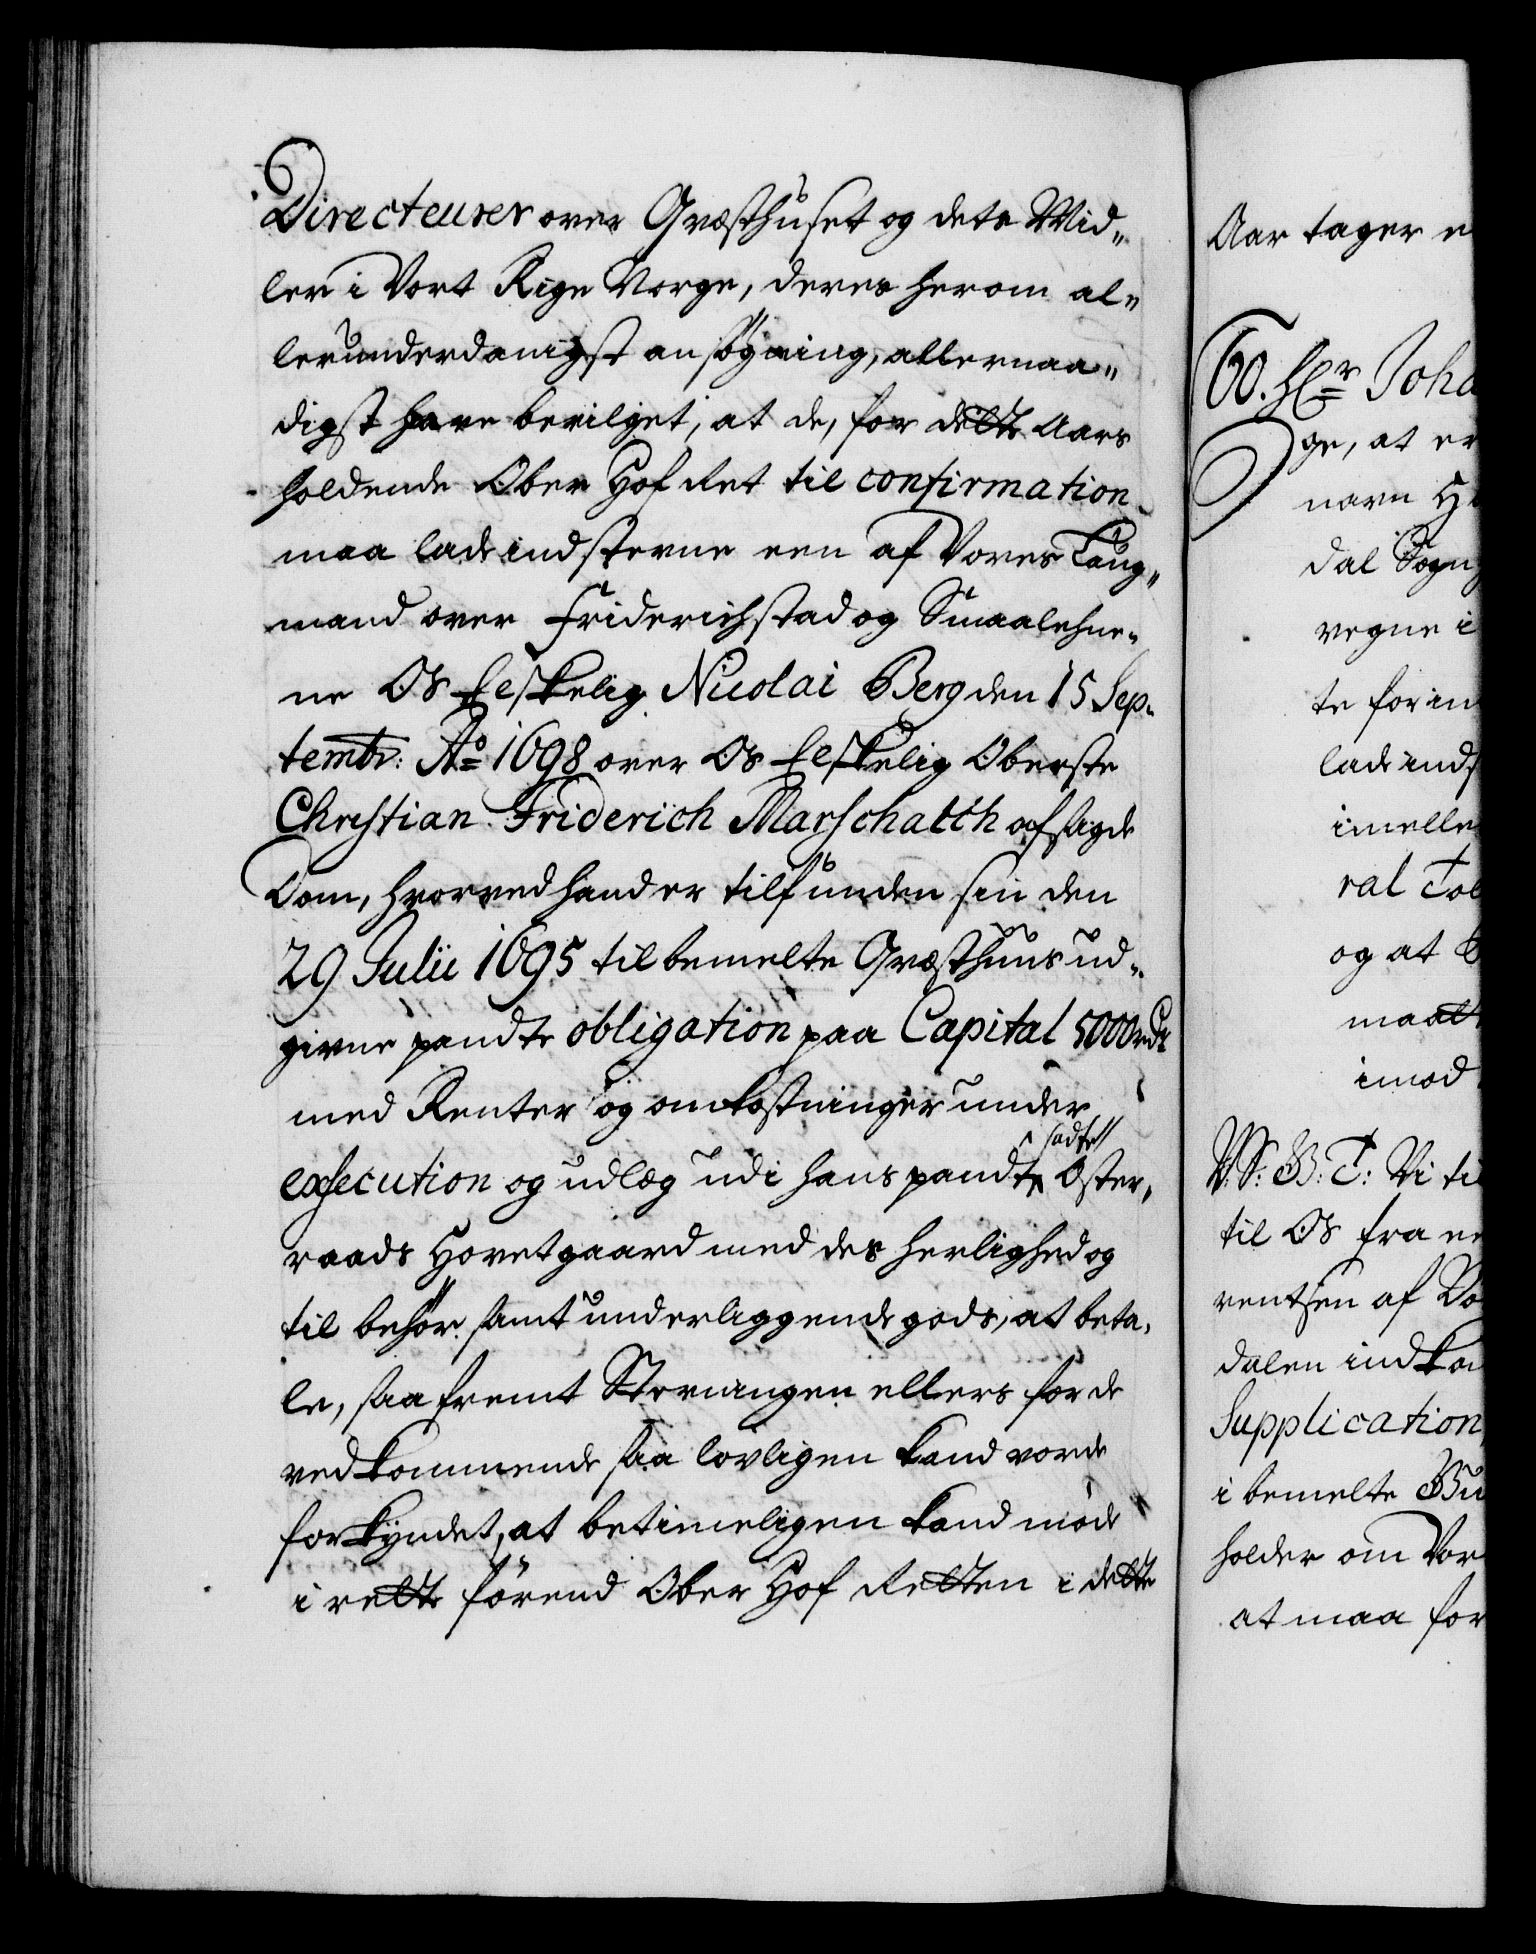 Directeurer over Qvæsthuset og dets Mid„
ler i Vort Rige Norge, deres herom al„
lerunderdanigst ansøgning, allernaa„
digst have bevilget, at de, for dette Aars
holdende Ober Hof Ret til confirmation
maa lade indsterne een af Vores Laug„
mand over Friderichstad og Smaalehne„
ne Os Elskelig Nicolai Berg den 15 Sep„
tembr: Ao 1698 over Os Elskelig Oberste
Christian Friderich Marschalch afsagde
Dom, hvorved hand er tilfunden sin den
29 Julii 1695 til bemelte Qvæsthuus ud„
givne pandte obligation paa Capital 5000 rdr
med Renter og omkostninger under
execution og udlæg udi hans pandtsadte Øster„
raads Hovetgaard med des herlighed og
til behør samt underliggende gods, at beta„
le, saafremt Stevningen ellers for de
vedkommende saa lovligen kand vorde
forkyndet, at betimeligen kand møde
i rette førend Ober Hof Retten i dette
Aar tager e
60. Hr Joha
ge, at er
navn H
dal Sogn
vegne i
te forin
lade inds
imelle
ral Tol
og at
maatt
imod
V. S: B: T: Vi ti
til Os fra e
rentsen af Vo
dalen indkom
Supplication,
i bemelte Bu
holder om Vor
at maa for